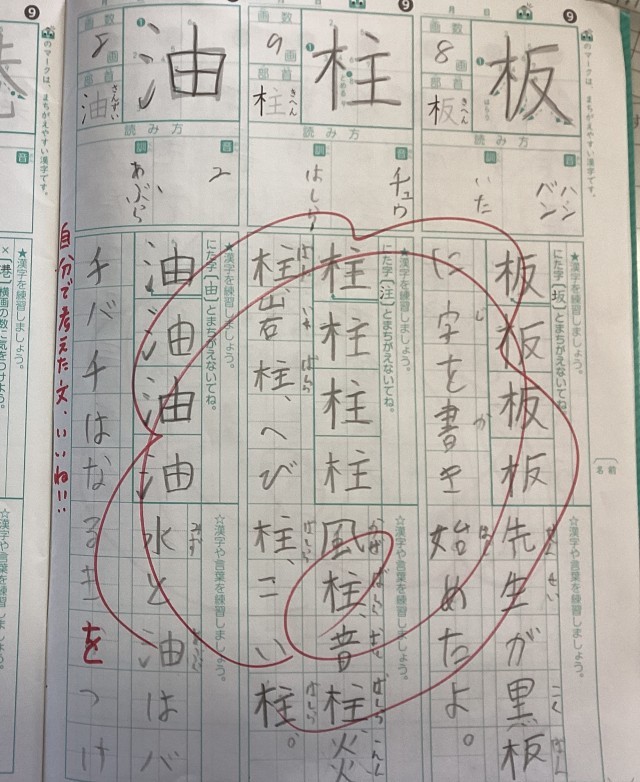 ❾
のマークは、まちがえやすい漢字です。
板
画数
8画
部首
きへん
板
読み方
音
ハン
バン
訓
いた
★漢字を練習しましょう。
にた字〔坂〕とまちがえないでね。
板板板板
☆漢字や言葉を練習しましょう。
先生が黒板
に字を書き始めたよ。
名前
❾
柱
画数
9画
部首
きへん
柱
読み方
音
チュウ
訓
はしら
★漢字を練習しましょう。
にた字〔注〕とまちがえないでね。
柱柱柱柱
☆漢字や言葉を練習しましょう。
風柱、音柱、炎
柱岩柱、へび柱、こい柱。
油
画数
8画
部首
さんずい
油
読み方
音
ユ
訓
あぶら
★漢字を練習しましょう。
にた字〔由〕とまちがえないでね。
油油油油
☆漢字や言葉を練習しましょう。
水と油はバ
チバチはなるきをつけ
自分で考えた文、いいね!!
❾
のマークは、まちがえやすい漢字です。
音
★漢字を練習しましょう。
×〔巷〕横画の数に気をつけよう。
☆漢字や言葉を練習しましょう。